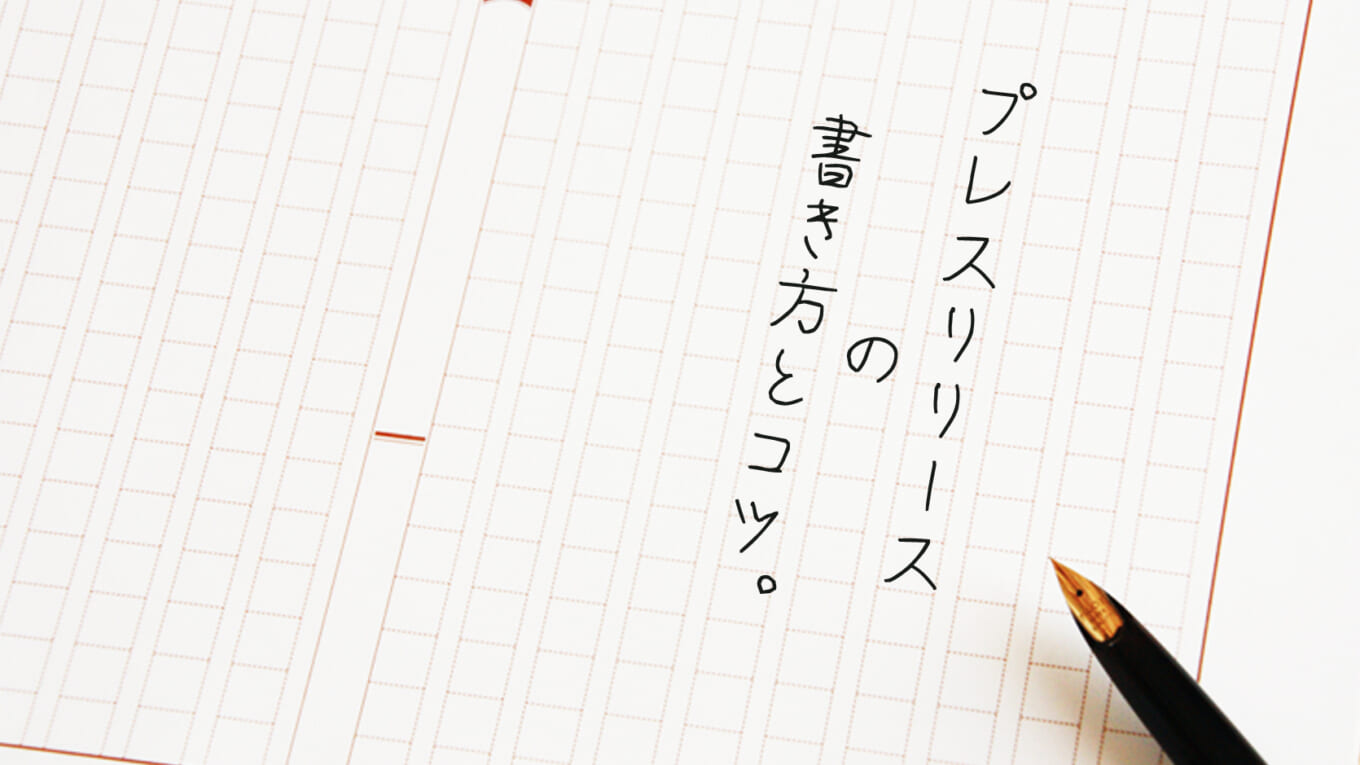 プレスリリース
の
書き方とコツ。